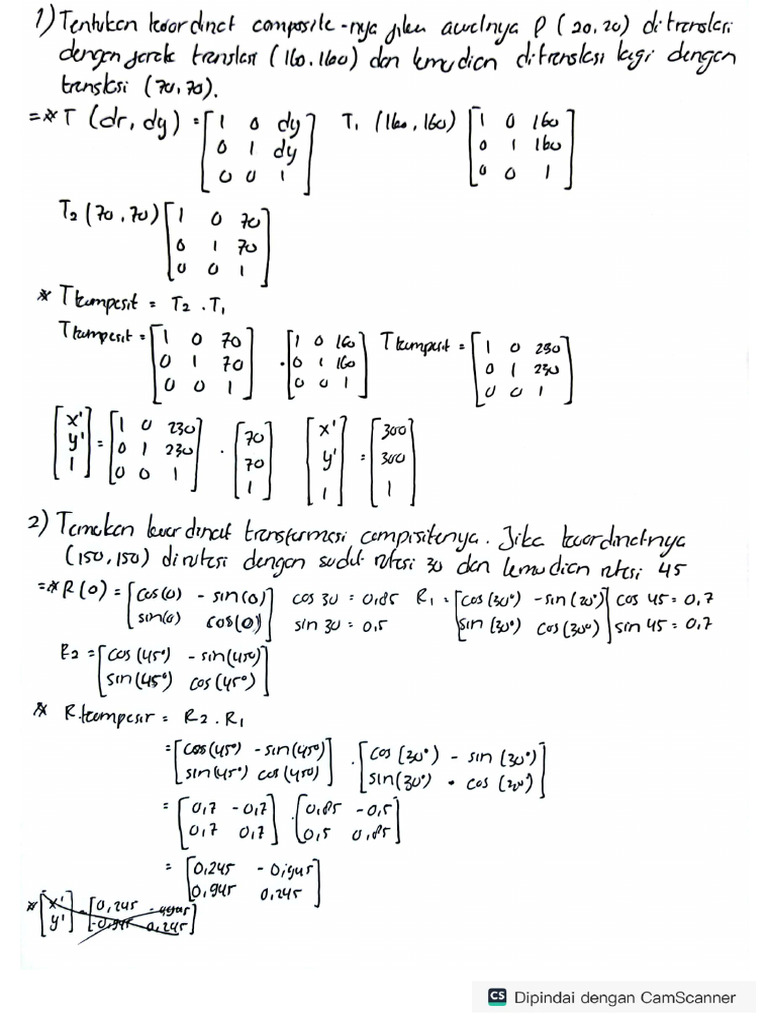 1) Tentukan koordinat composite-nya jika awalnya P (20,20) ditranslasi
dengan jarak translasi (160,160) dan kemudian ditranslasi lagi dengan
translasi (70,70).
=* T (dx, dy) = [1 0 dy] T1 (160, 160) [1 0 160]
[0 1 dy] [0 1 160]
[0 0 1] [0 0 1]
T2 (70,70) [1 0 70]
[0 1 70]
[0 0 1]
* Tkomposit = T2 . T1
Tkomposit = [1 0 70] . [1 0 160] Tkomposit = [1 0 230]
[0 1 70] [0 1 160] [0 1 230]
[0 0 1] [0 0 1] [0 0 1]
[x'] = [1 0 230] . [70] [x'] = [300]
[y'] [0 1 230] [70] [y'] [300]
[1] [0 0 1] [1] [1] [1]
2) Temukan koordinat transformasi compisitenya. Jika koordinatnya
(150,150) dirotasi dengan sudut rotasi 30 dan kemudian rotasi 45
=* R(0) = [cos(0) - sin(0)] cos 30 = 0,85 R1 = [cos(30°) -sin(30°)] cos 45 = 0,7
[sin(0) cos(0)] sin 30 = 0,5 [sin(30°) cos(30°)] sin 45 = 0,7
R2 = [cos(45°) - sin(45°)]
[sin(45°) cos(45°)]
* R.komposit = R2 . R1
= [cos(45°) - sin(45°)] . [cos(30°) - sin(30°)]
[sin(45°) cos(45°)] [sin(30°) . cos(30°)]
= [0,7 - 0,7] . [0,85 -0,5]
[0,7 0,7] [0,5 0,85]
= [0,245 - 0,945]
[0,945 0,245]
* [x'] = [0,245
[y'] [-0,945 0,245]
CS Dipindai dengan CamScanner